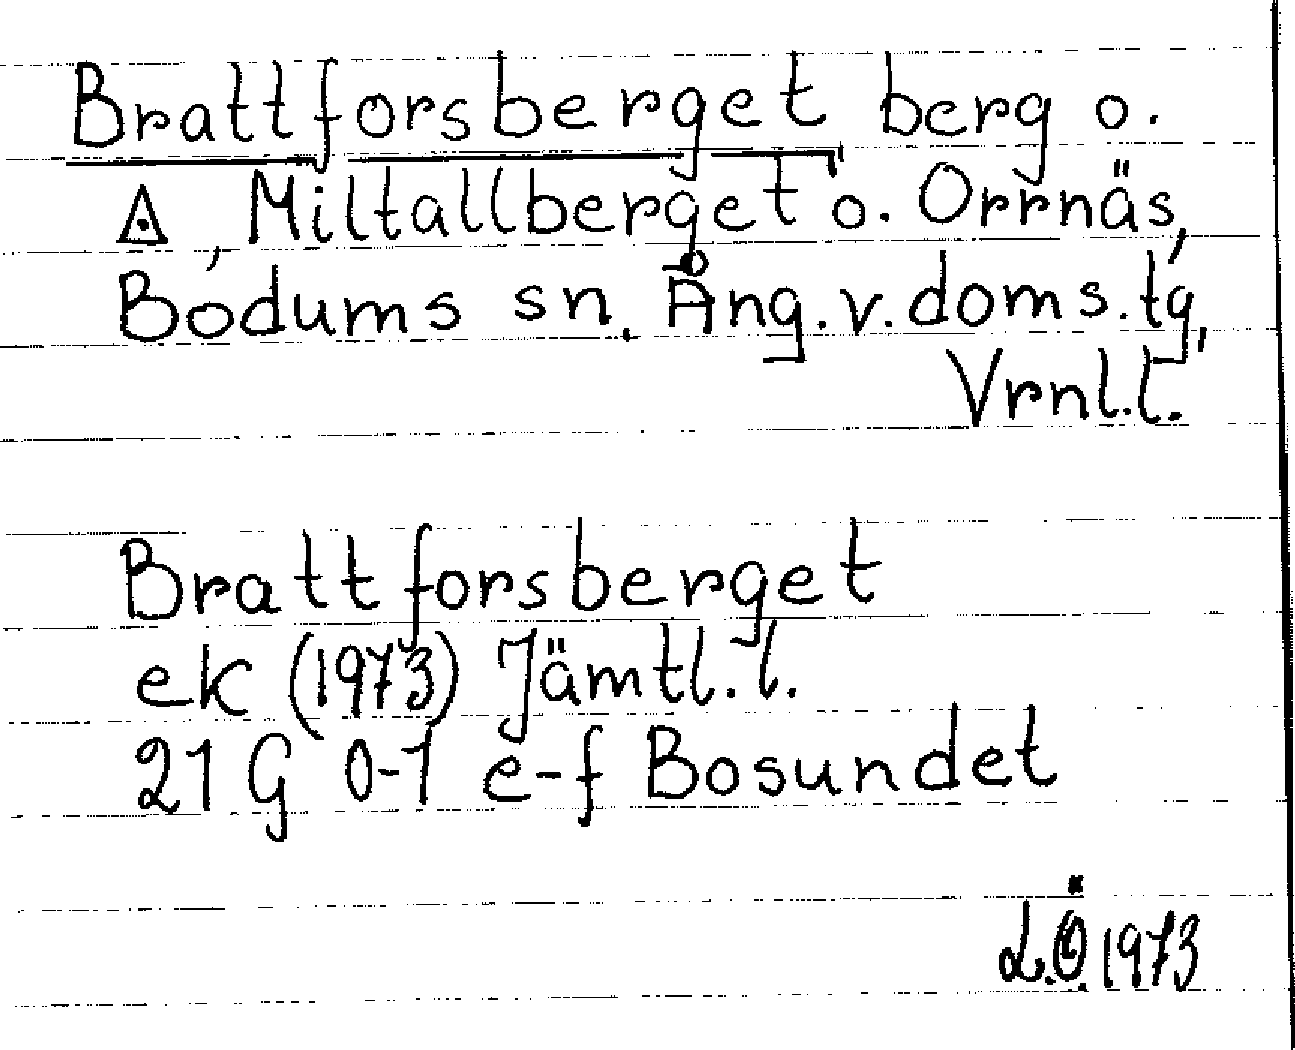 Brattforsberget berg o.
◬, Miltallberget o. Orrnäs,
Bodums sn. Ång.v.doms.tg,
Vrnl.l.
Brattforsberget
ek (1973) Jämtl.l.
21 G 0-1 e-f Bosundet
L.Ö. 1973